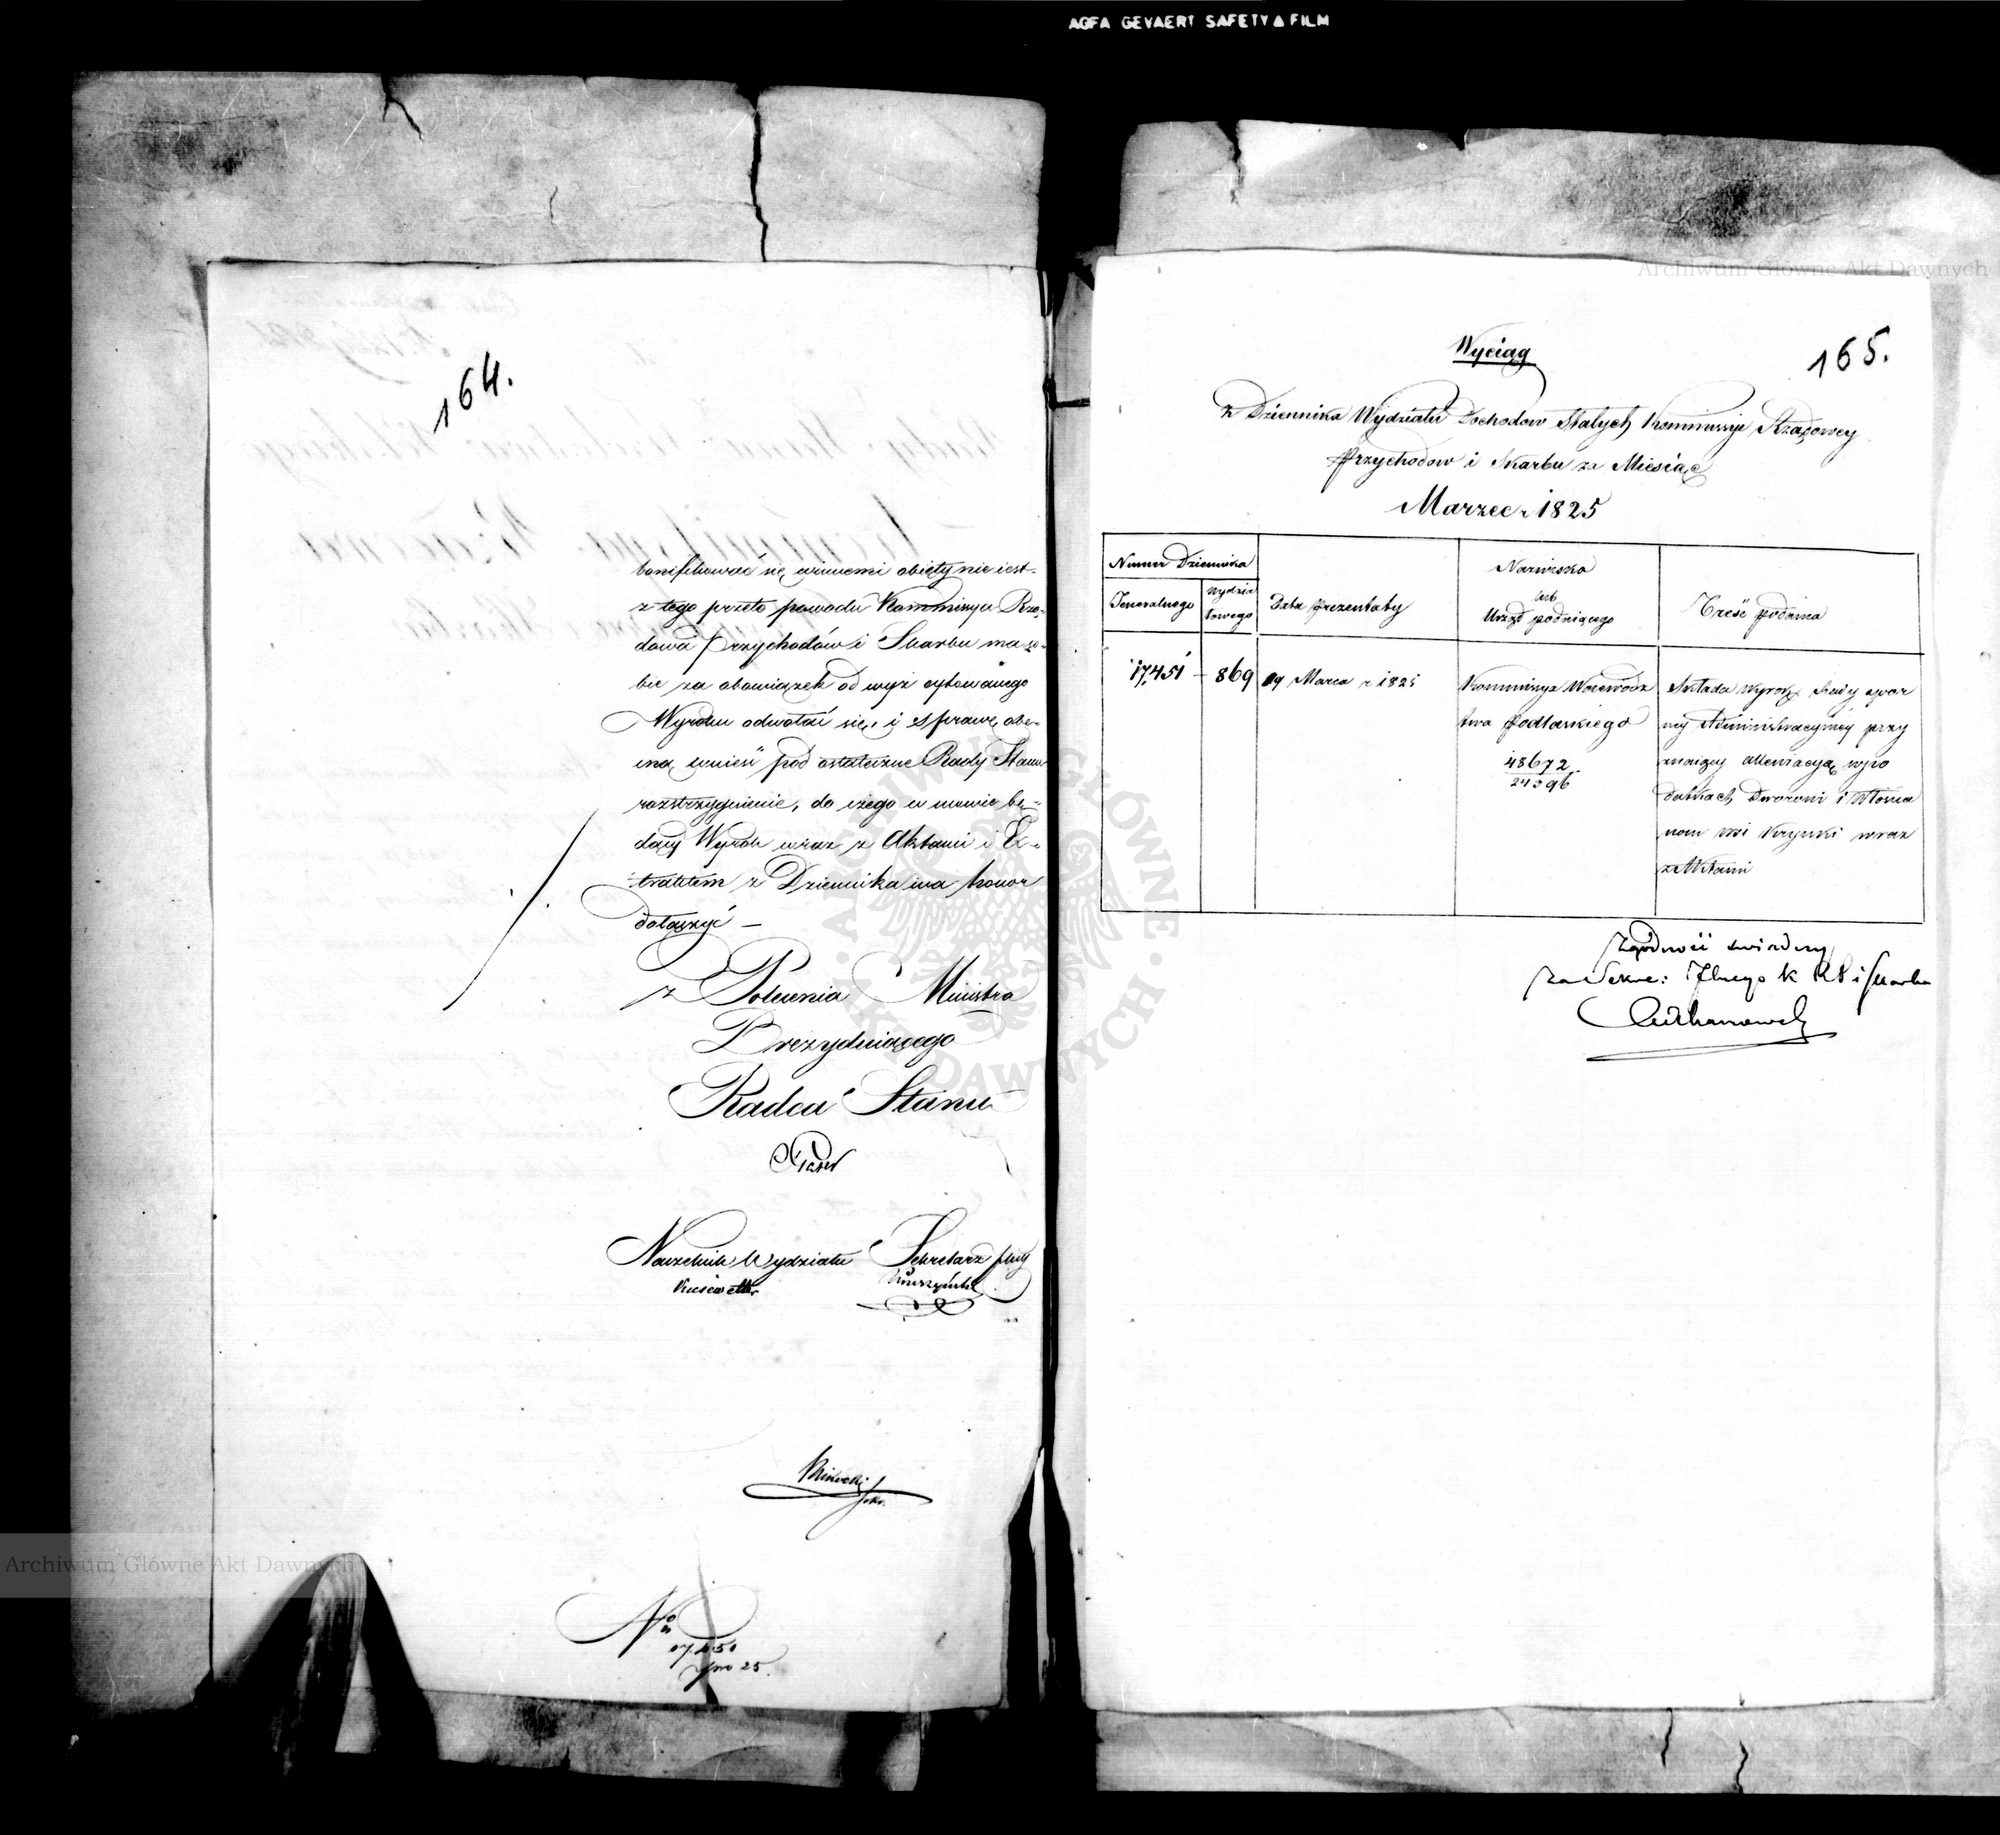 AGFA GEVAERT SAFETY FILM
164.
bonifikować się winnemi obięty nie iest
z tego przeto powodu Kommissya Rzą-
dowa Przychodów i Skarbu ma so-
bie za obowiązek od wyż cytowanego
Wyroku odwołać się, i sprawę obe-
cną wnieść pod ostateczne Rady Stanu
rozstrzygnienie, do czego w mowie bę-
dący Wyrok wraz z Aktami i Ex-
traktem z Dziennika ma honor
dołączyć —
z Polecenia Ministra
Prezyduiącego
Radca Stanu
Naczelnik Wydziału Sekretarz Jlny
No
17.451
25.
Archiwum Główne Akt Dawnych
165.
Wyciąg
z Dziennika Wydziału Dochodow Stałych Kommissyi Rządowey
Przychodow i Skarbu za Miesiąc
Marzec r 1825
Numer Dziennika
Generalnego
Wydzia
łowego
Data Prezentaty
Nazwisko
lub
Urząd podaiącego
Treść podania
17,451 - 869
09 Marca r 1825
Kommissya Wojewódz
twa Podlaskiego
48672
24396
Składa wyrok Rady spor
ney Administracyiney przy
znaiący allewiacyą w po
datkach Dworowi i Włościa
nom wsi Krynki wraz
z Aktami
Zgodność świadczy
Za Sekre: Jlnego K R P i Skarbu
Archiwum Główne Akt Dawnych
ARCHIWUM GŁÓWNE AKT DAWNYCH